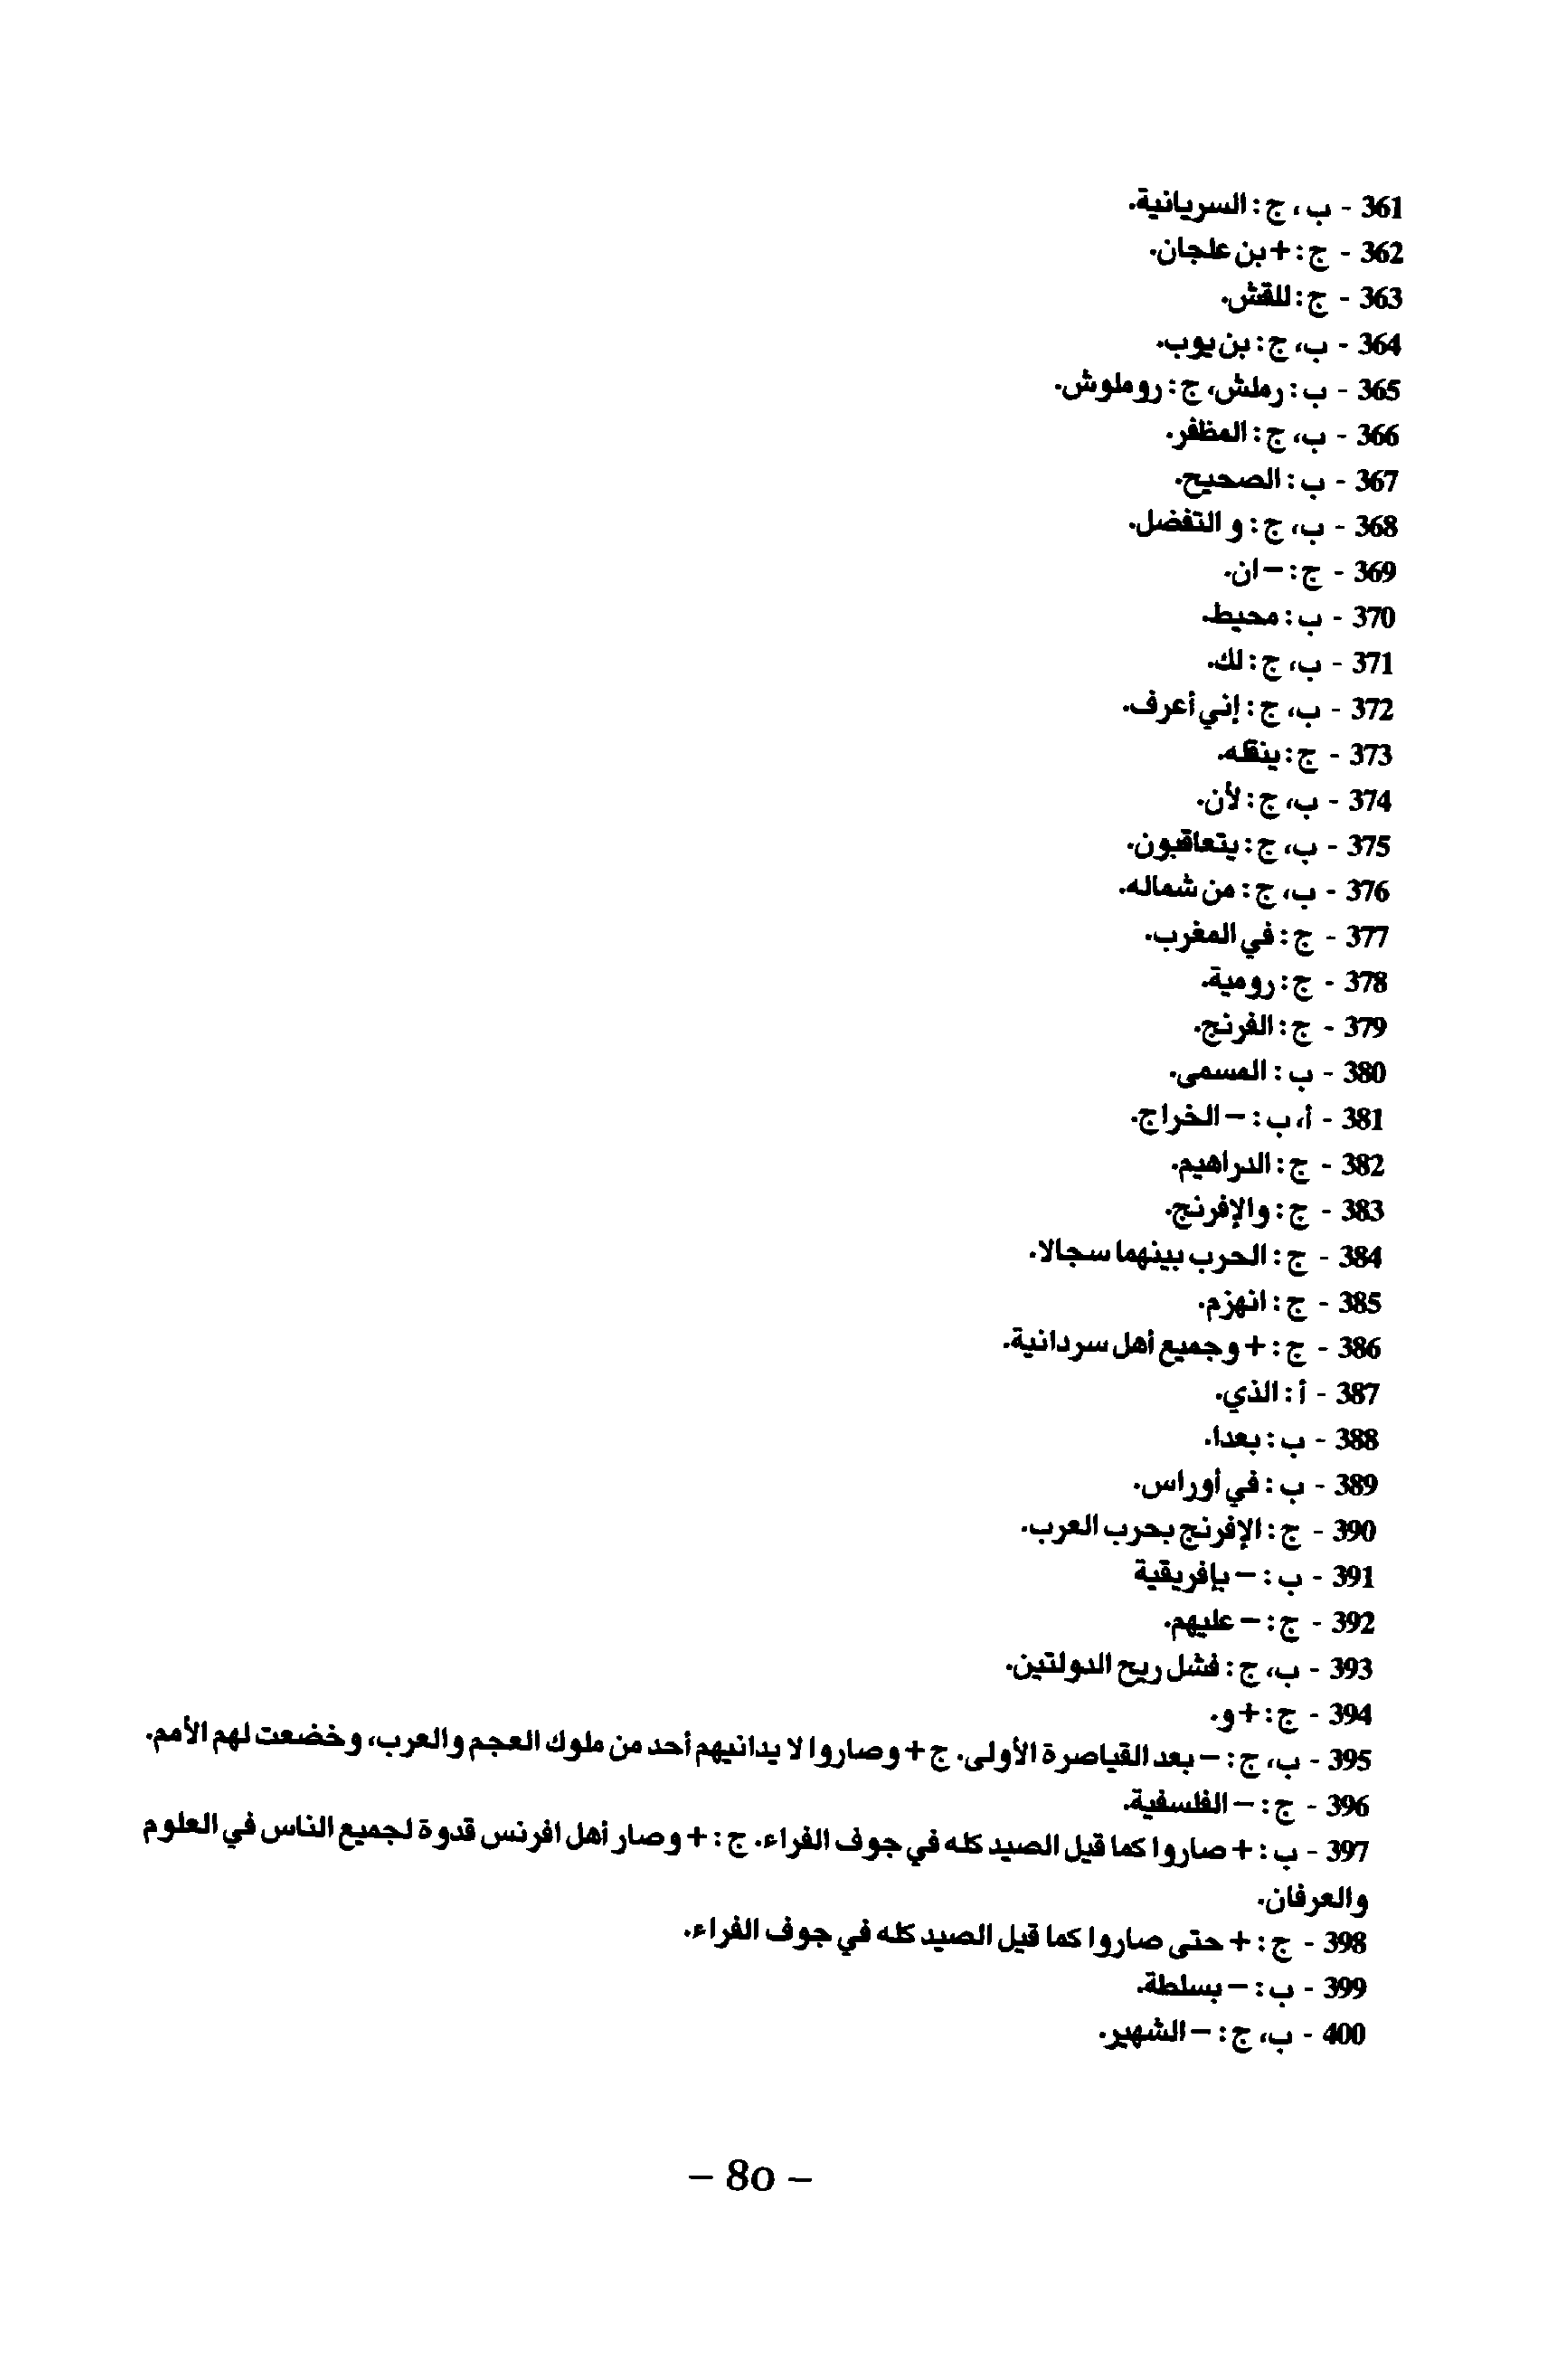 361 - ب، ج : السريانية.
362 - ج : + بن علجان.
363 - ج : للقش.
364 - ب، ج : بن يوب.
365 - ب : رملش، ج : روملوش.
366 - ب، ج : المظفر.
367 - ب : الصحيح.
368 - ب، ج : و التفضل.
369 - ج : – ان.
370 - ب : محيط.
371 - ب، ج : لك.
372 - ب، ج : إني أعرف.
373 - ج : ينقله.
374 - ب، ج : لأن.
375 - ب، ج : يتعاقبون.
376 - ب، ج : من شماله.
377 - ج : في المغرب.
378 - ج : رومية.
379 - ج : الفرنج.
380 - ب : المسمى.
381 - أ، ب : – الخراج.
382 - ج : الدراهيم.
383 - ج : والإفرنج.
384 - ج : الحرب بينهما سجالا.
385 - ج : انهزم.
386 - ج : + وجميع أهل سردانية.
387 - أ : الذي.
388 - ب : بعدا.
389 - ب : في أوراس.
390 - ج : الإفرنج بحرب العرب.
391 - ب : – بإفريقية
392 - ج : – عليهم.
393 - ب، ج : فشل ريح الدولتين.
394 - ج : + و.
395 - ب، ج : – بعد القياصرة الأولى. ج + وصاروا لا يدانيهم أحد من ملوك العجم والعرب، وخضعت لهم الأمم.
396 - ج : – الفلسفية.
397 - ب : + صاروا كما قيل الصيد كله في جوف الفراء. ج : + وصار أهل افرنس قدوة لجميع الناس في العلوم
والعرفان.
398 - ج : + حتى صاروا كما قيل الصيد كله في جوف الفراء.
399 - ب : – بسلطة.
400 - ب، ج : – الشهير.
– 80 –